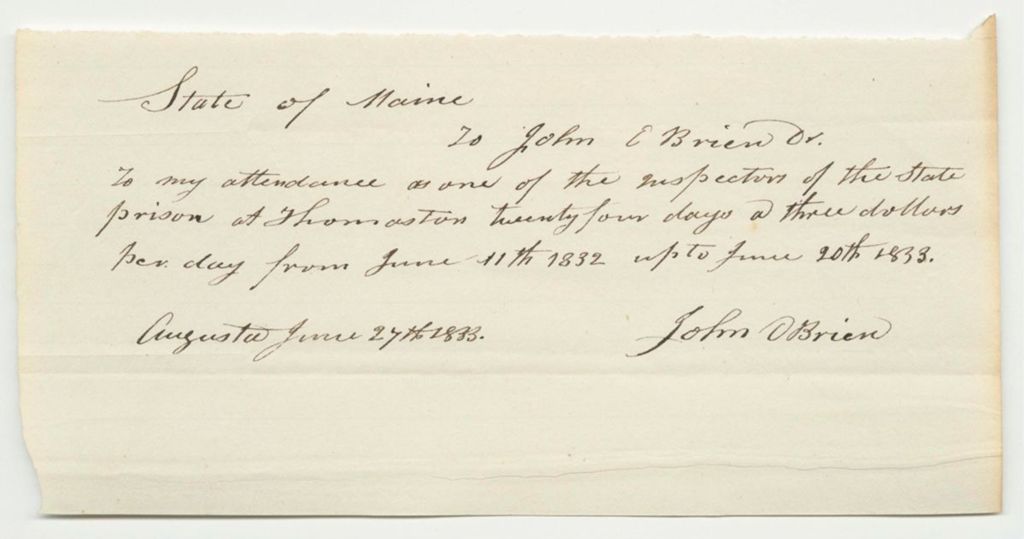 State of Maine
To John O Brien Dr.
To my attendance as one of the inspectors of the state
prison at Thomaston twenty four days a three dollars
per. day from June 11th 1832 up to June 20th 1833.
Augusta June 27th 1833.
John OBrien